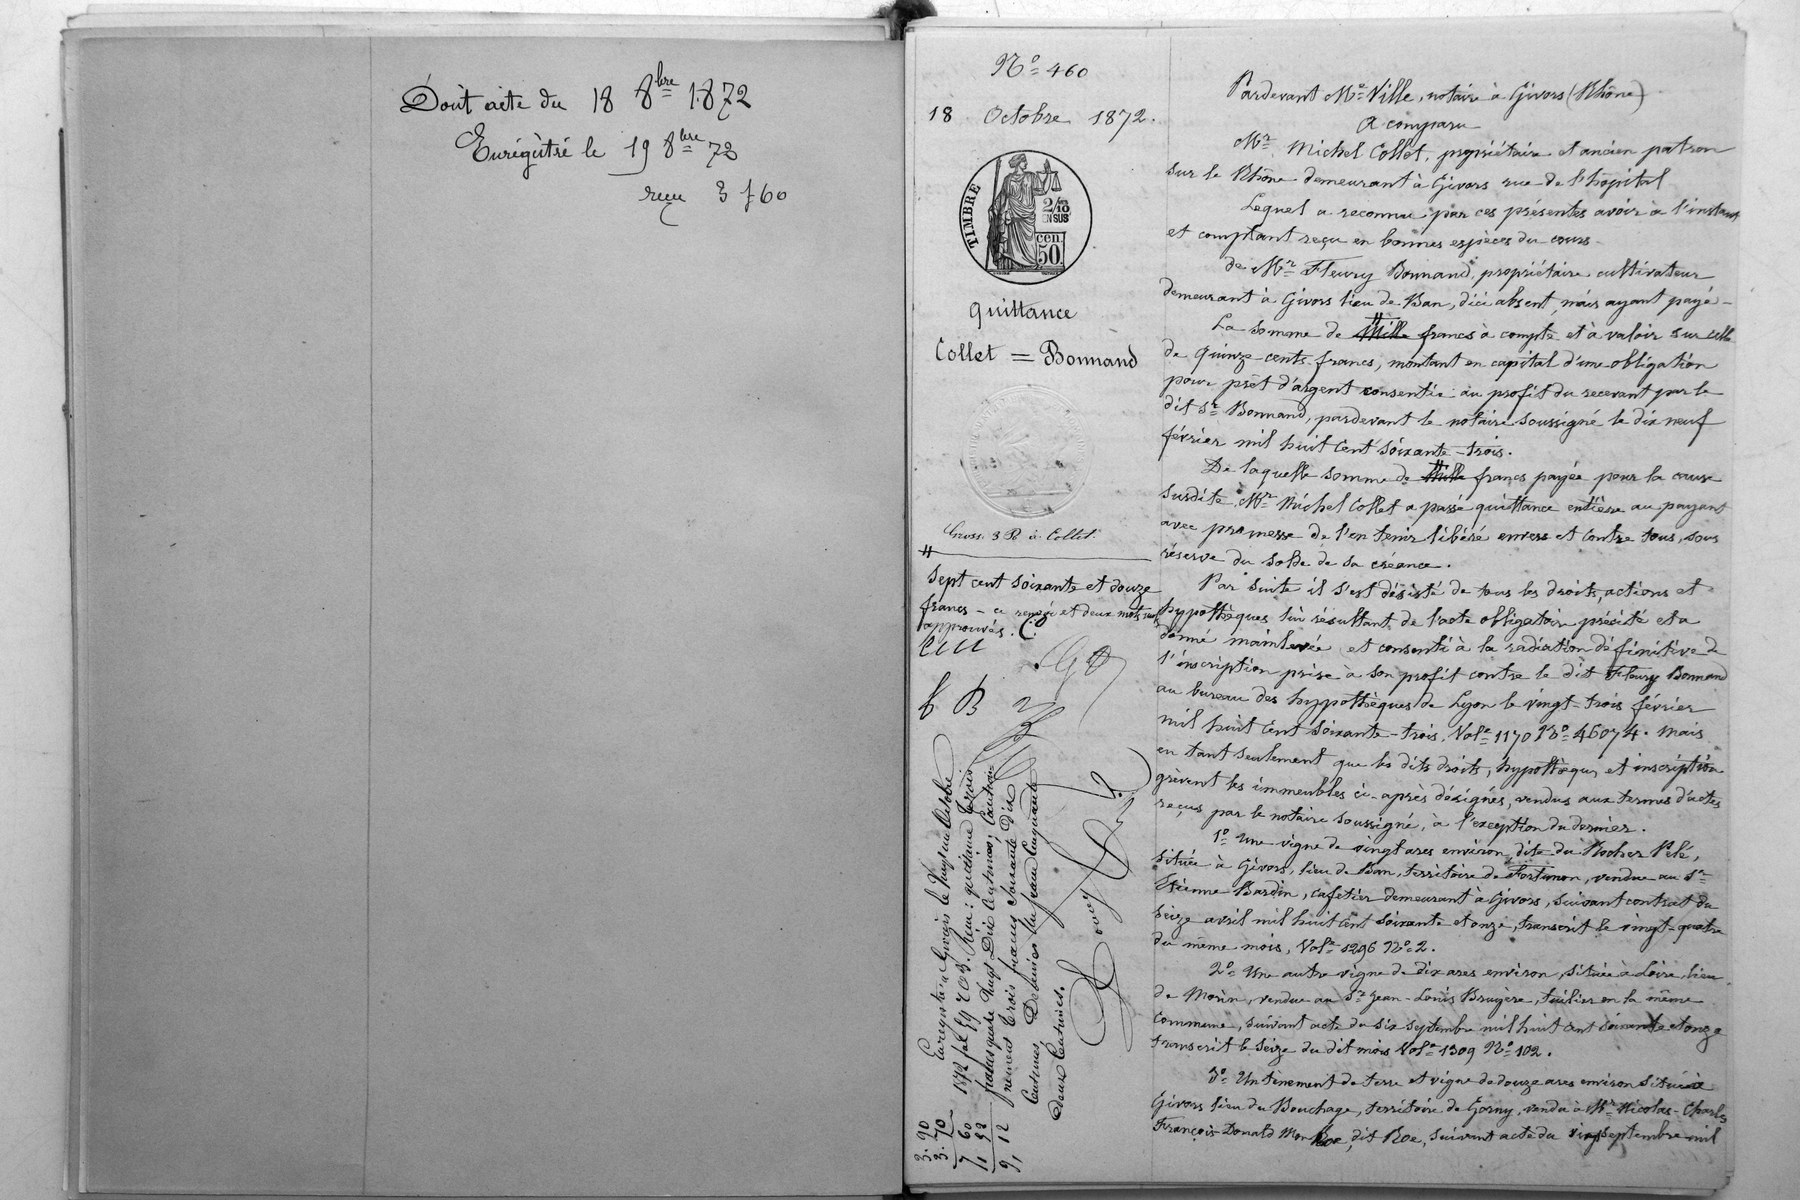 Doit acte du 18 8bre 1872
Enrégistré le 19 8bre 72
reçu 3 f 60
No 460
18 Octobre 1872.
TIMBRE
2/10
EN SUS
cen.
50.
Quittance
Collet = Bonnand
Gross. 3 R. à Collet.
Sept cent soixante et douze
francs - ce renvoi et deux mots nuls
approuvés.
f B
Enregistré à Givors le dix neuf octobre
1872 fol 59 C 3. Reçu: quittance trois
francs quatre vingt dix centimes; 
francs soixante dix
centimes
deux centimes.
3. 90
3. 70
7 60
1, 52
9, 12
Pardevant Me Ville, notaire à Givors (Rhône)
A comparu
Mr Michel Collet, propriétaire et ancien patron
sur le Rhône demeurant à Givors rue de l'hôpital
Lequel a reconnu par ces présentes avoir à l'instant
et comptant reçu en bonnes espèces du cours
de Mr Fleury Bonnand, propriétaire cultivateur
demeurant à Givors lieu de Ban, d'ici absent, mais ayant payé -
La somme de Mille francs à compte et à valoir sur celle
de quinze cents francs, montant en capital d'une obligation
pour prêt d'argent consentie au profit du recevant par le
dit Sr Bonnand, pardevant le notaire soussigné le dix neuf
février mil huit cent soixante-trois.
De laquelle somme de Mille francs payée pour la cause
susdite, Mr Michel Collet a passé quittance entière au payant
avec promesse de l'en tenir libéré envers et contre tous, sous
réserve du solde de sa créance.
Par suite il s'est désisté de tous les droits, actions et
hypothèques lui résultant de l'acte obligatoire précité et a
donné mainlevée et consenti à la radiation définitive de
l'inscription prise à son profit contre le dit Fleury Bonnand
au bureau des hypothèques de Lyon le vingt-trois février
mil huit cent soixante-trois, Vole 1170 No 46074. mais
en tant seulement que les dits droits, hypothèques et inscription
grèvent les immeubles ci-après désignés, vendus aux termes d'actes
reçus par le notaire soussigné, à l'exception du dernier.
1o Une vigne de vingt ares environ, dite du Rocher Pelé,
située à Givors, lieu de Ban, territoire de Fortunon, vendue au Sr
Etienne Bardin, cafetier demeurant à Givors, suivant contrat du
seize avril mil huit cent soixante et onze, transcrit le vingt-quatre
du même mois, Vole 1296 No 2.
2o Une autre vigne de dix ares environ, située à Loire, lieu
de Morin, vendue au Sr Jean-Louis Bruyère, tuilier en la même
commune, suivant acte du six septembre mil huit cent soixante et onze
transcrit le seize du dit mois Vole 1309 No 102.
3o Un tènement de terre et vigne de douze ares environ situé à
Givors lieu du Bouchage, territoire de Gorny, vendu à Mr Nicolas-Charles
François Donald Mon Roe, dit Roe, suivant acte du vingt septembre mil